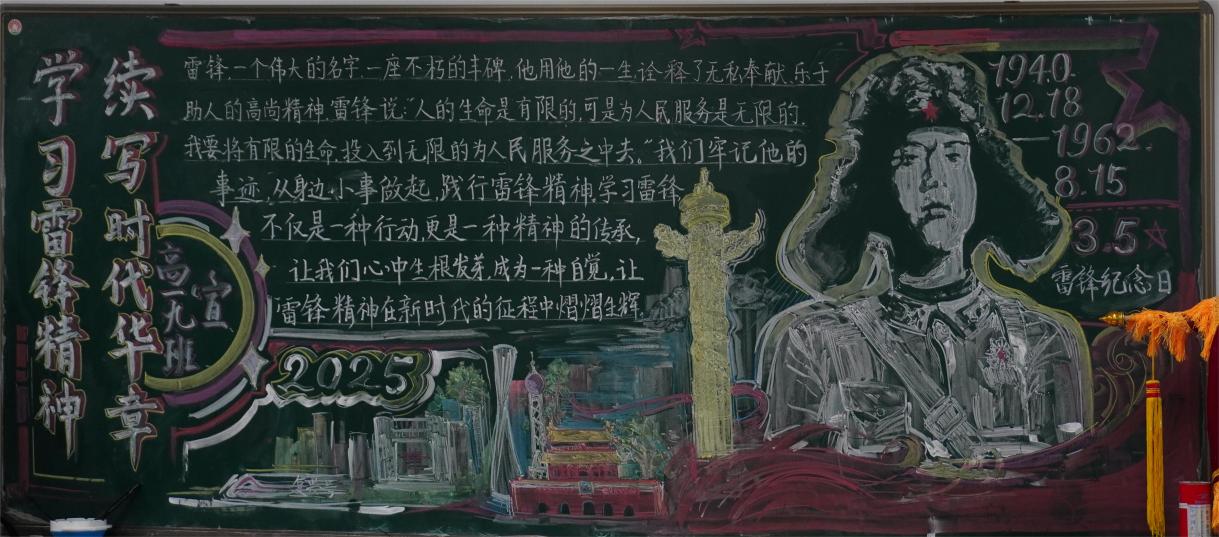 续写时代华章
学习雷锋精神
雷锋,一个伟大的名字,一座不朽的丰碑,他用他的一生,诠释了无私奉献、乐于
助人的高尚精神.雷锋说:"人的生命是有限的,可是为人民服务是无限的,
我要将有限的生命,投入到无限的为人民服务之中去。"我们牢记他的
事迹,从身边小事做起,践行雷锋精神,学习雷锋
不仅是一种行动,更是一种精神的传承,
让我们心中生根发芽,成为一种自觉,让
雷锋精神在新时代的征程中熠熠生辉.
高一九班
宣
2025
1940.
12.18
—1962.
8.15
3.5
雷锋纪念日